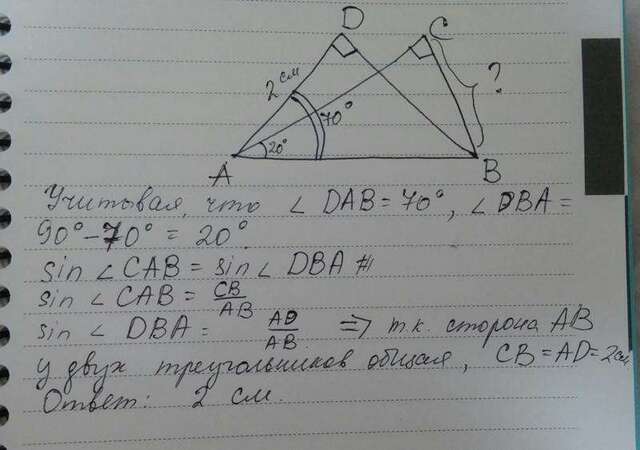 D C
2 см ?
70°
20°
A B
Учитывая, что ∠ DAB = 70°, ∠ DBA =
90° - 70° = 20°.
sin ∠ CAB = sin ∠ DBA
sin ∠ CAB = CB/AB
sin ∠ DBA = AD/AB => т.к. сторона AB
у двух треугольников общая, CB = AD = 2см
Ответ: 2 см.